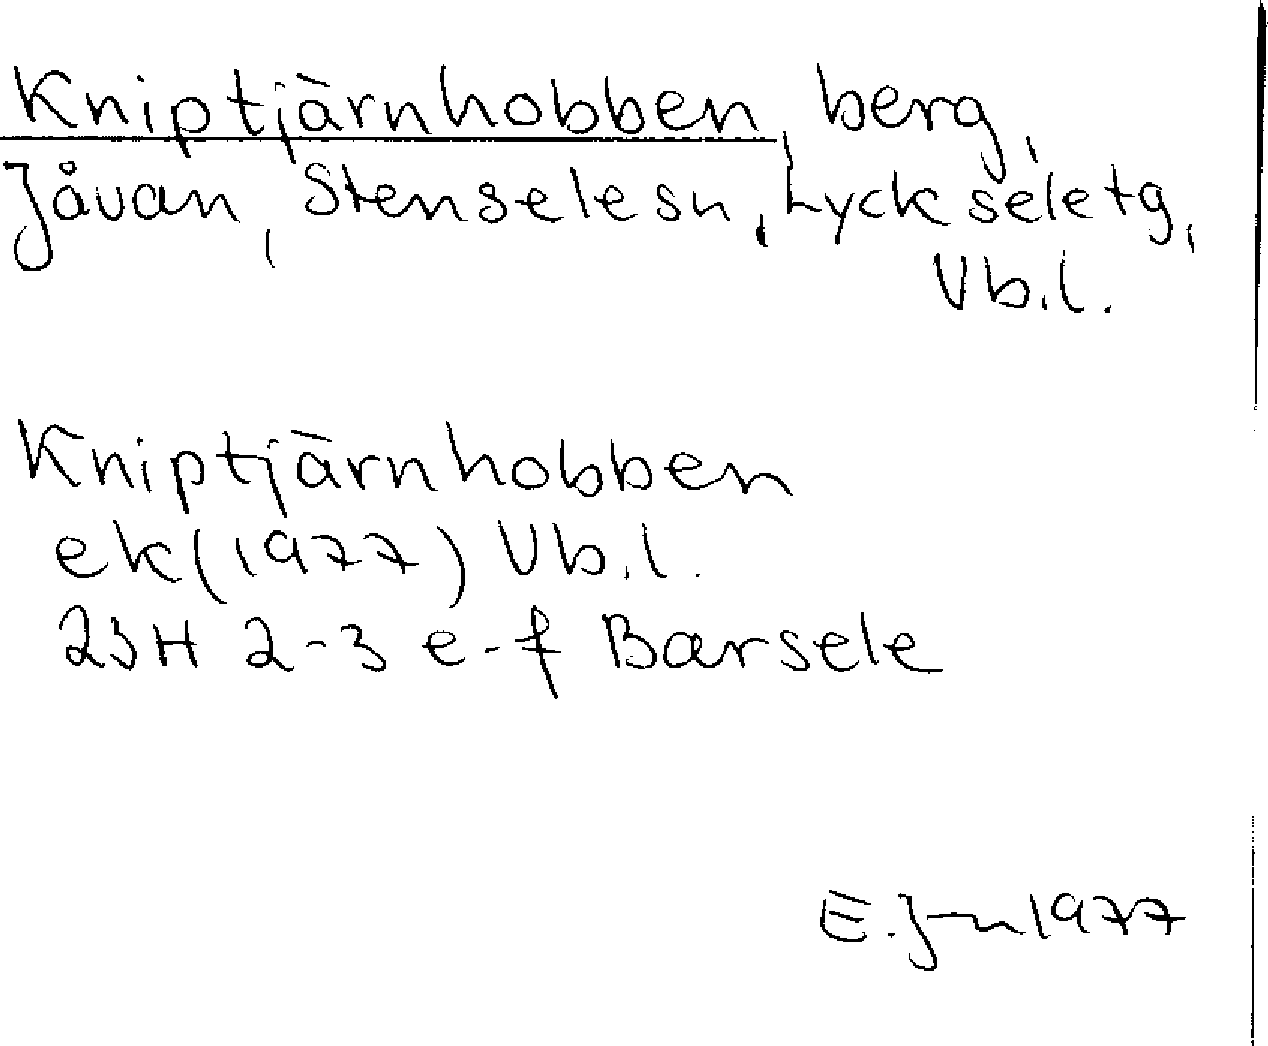 Kniptjärnhobben, berg,
Jåvan, Stenselesn, Lyckseletg,
Vb.l.
Kniptjärnhobben
ek(1977) Vb.l.
23H 2-3 e-f Barsele
E. 1977